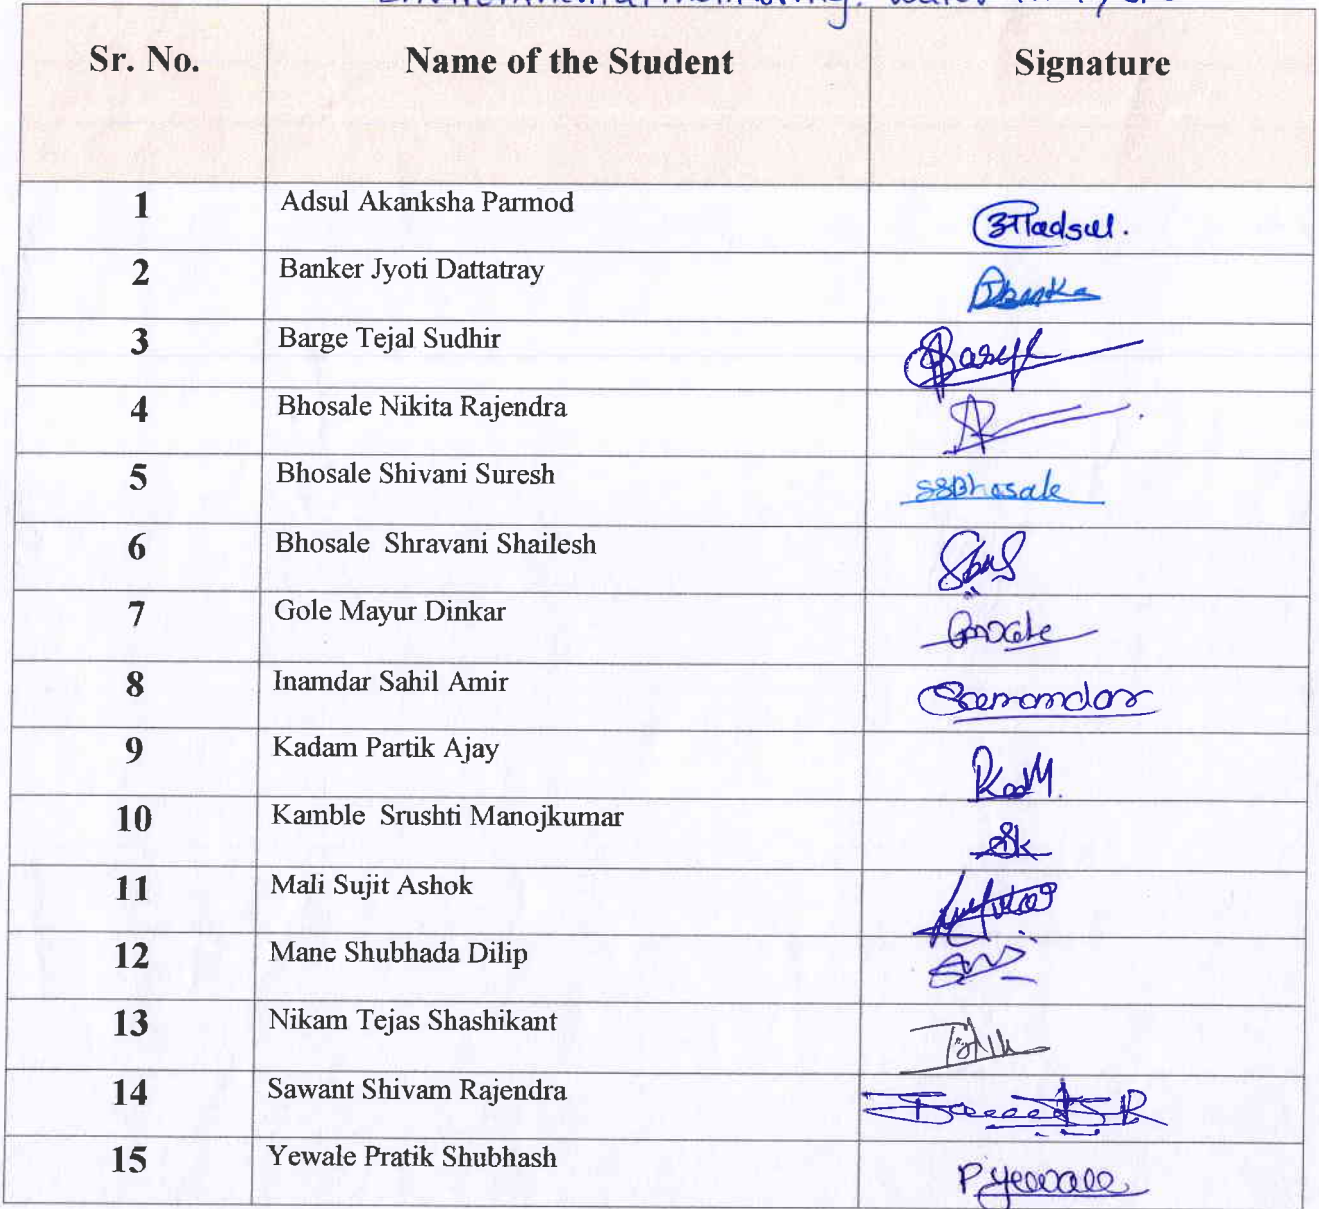 Environmental monitoring: Water
Sr. No. Name of the Student Signature
1 Adsul Akanksha Parmod आadsul.
2 Banker Jyoti Dattatray
3 Barge Tejal Sudhir
4 Bhosale Nikita Rajendra
5 Bhosale Shivani Suresh SSBhosale
6 Bhosale Shravani Shailesh
7 Gole Mayur Dinkar
8 Inamdar Sahil Amir
9 Kadam Partik Ajay
10 Kamble Srushti Manojkumar Sk
11 Mali Sujit Ashok
12 Mane Shubhada Dilip
13 Nikam Tejas Shashikant
14 Sawant Shivam Rajendra
15 Yewale Pratik Shubhash PYewale